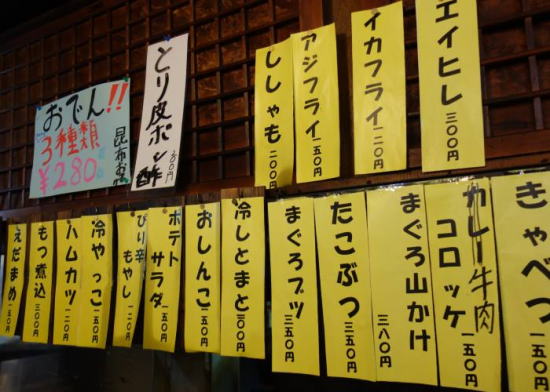 エイヒレ
三〇〇円
イカフライ
一二〇円
アジフライ
一五〇円
ししゃも
二〇〇円
とり皮ポン酢
おでん!!
3種類
¥280
昆布
きゃべつ
カレー牛肉
コロッケ
一五〇円
まぐろ山かけ
三八〇円
たこぶつ
三五〇円
まぐろブツ
三五〇円
冷しとまと
三〇〇円
おしんこ
一五〇円
ポテト
サラダ
一五〇円
ぴり辛
もやし
一二〇円
冷やっこ
一五〇円
ハムカツ
もつ煮込
三五〇円
えだまめ
一五〇円